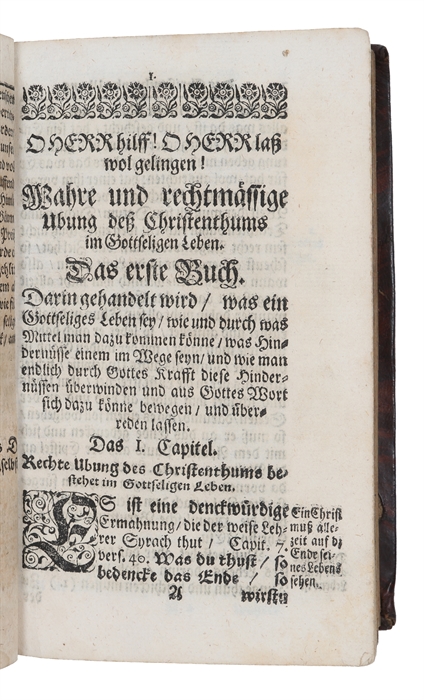 1.
O HERR hilff! O HERR laß
wol gelingen!
Wahre und rechtmässige
Ubung deß Christenthums
im Gottseligen Leben.
Das erste Buch.
Darin gehandelt wird / was ein
Gottseliges Leben sey / wie und durch was
Mittel man dazu kommen könne / was Hin-
dernüsse einem im Wege seyn / und wie man
endlich durch Gottes Krafft diese Hinder-
nüssen überwinden und aus Gottes Wort
sich dazu könne bewegen / und über-
reden lassen.
Das I. Capitel.
Rechte Ubung des Christenthums be-
stehet im Gottseligen Leben.
ES ist eine denckwürdige
Ermahnung / die der weise Leh-
rer Syrach thut / Capit. 7.
vers. 40. Was du thust / so
bedencke das Ende / so
Ein Christ
muß alle-
zeit auf dz
Ende sei-
nes Lebens
sehen.
A
wirstu